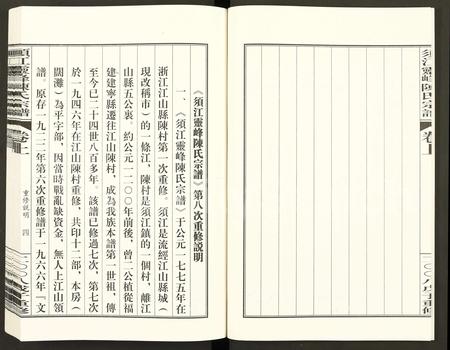 須江靈峰陳氏宗譜
卷上
二〇〇八戊子重修
《須江靈峰陳氏宗譜》第八次重修説明
一、《須江靈峰陳氏宗譜》于公元一七七五年在
浙江江山縣陳村第一次重修。須江是流經江山縣城（
現改稱市）的一條江，陳村是須江鎮的一個村，離江
山縣五公裏。約公元一二〇〇年前後，曾二公植從福
建建寧縣遷往江山陳村，成為我族本譜第一世祖，傳
至今已二十四世八百多年。該譜已修過七次，第七次
於一九四六年在江山陳村重修，共印十二部，本房（
闊灘）為平字部，因當時戰亂缺資金，無人上江山領
譜。原存一九二二年第六次重修譜于一九六六年『文
須江靈峰陳氏宗譜
卷上
重修説明 四
二〇〇八戊子重修